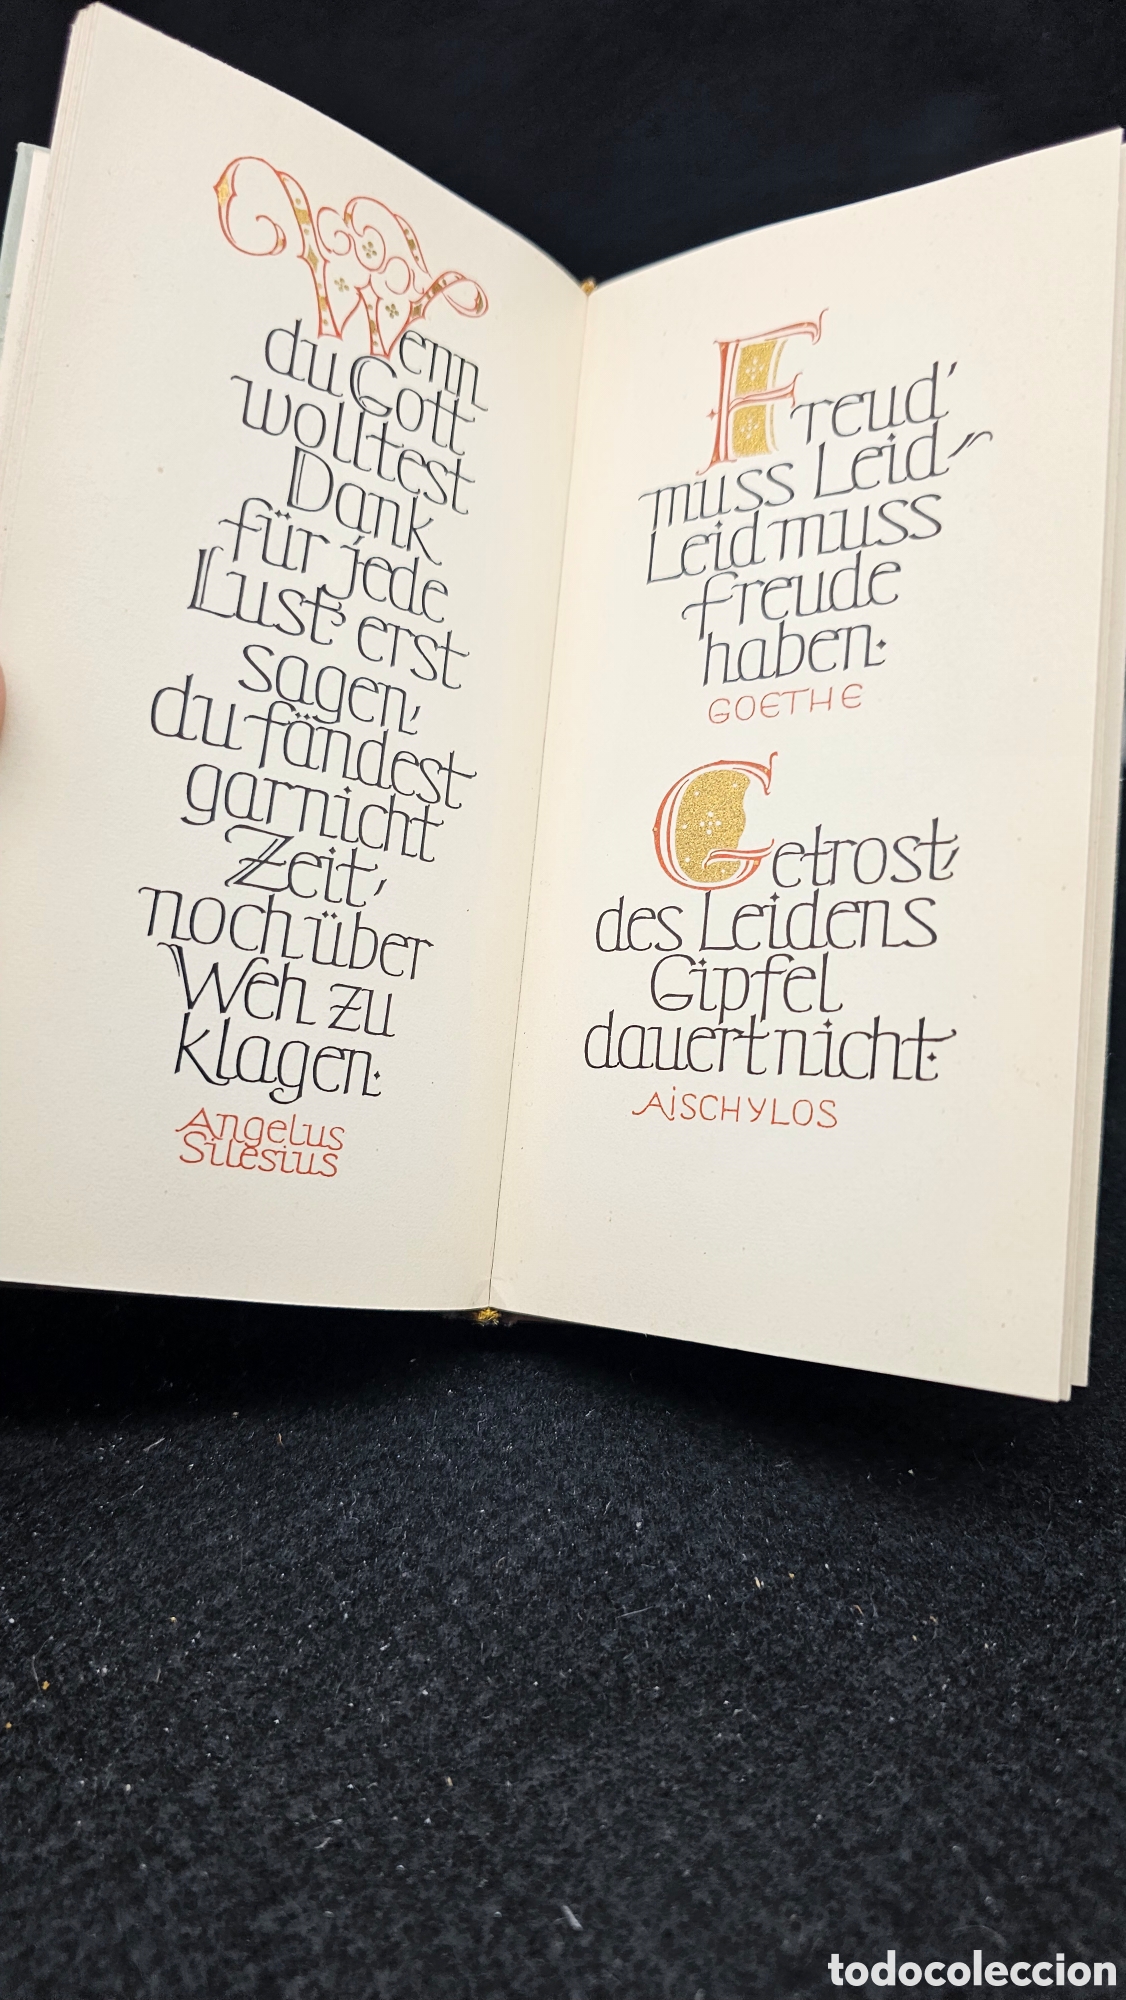 Wenn
du Gott
wolltest
Dank
für jede
Lust, erst
sagen,
du fändest
garnicht
Zeit,
noch über
Weh zu
klagen.
Angelus
Silesius
Freud'
muss Leid-
Leid muss
Freude
haben.
GOETHE
Getrost,
des Leidens
Gipfel
dauert nicht.
AiSCHYLOS
todocoleccion